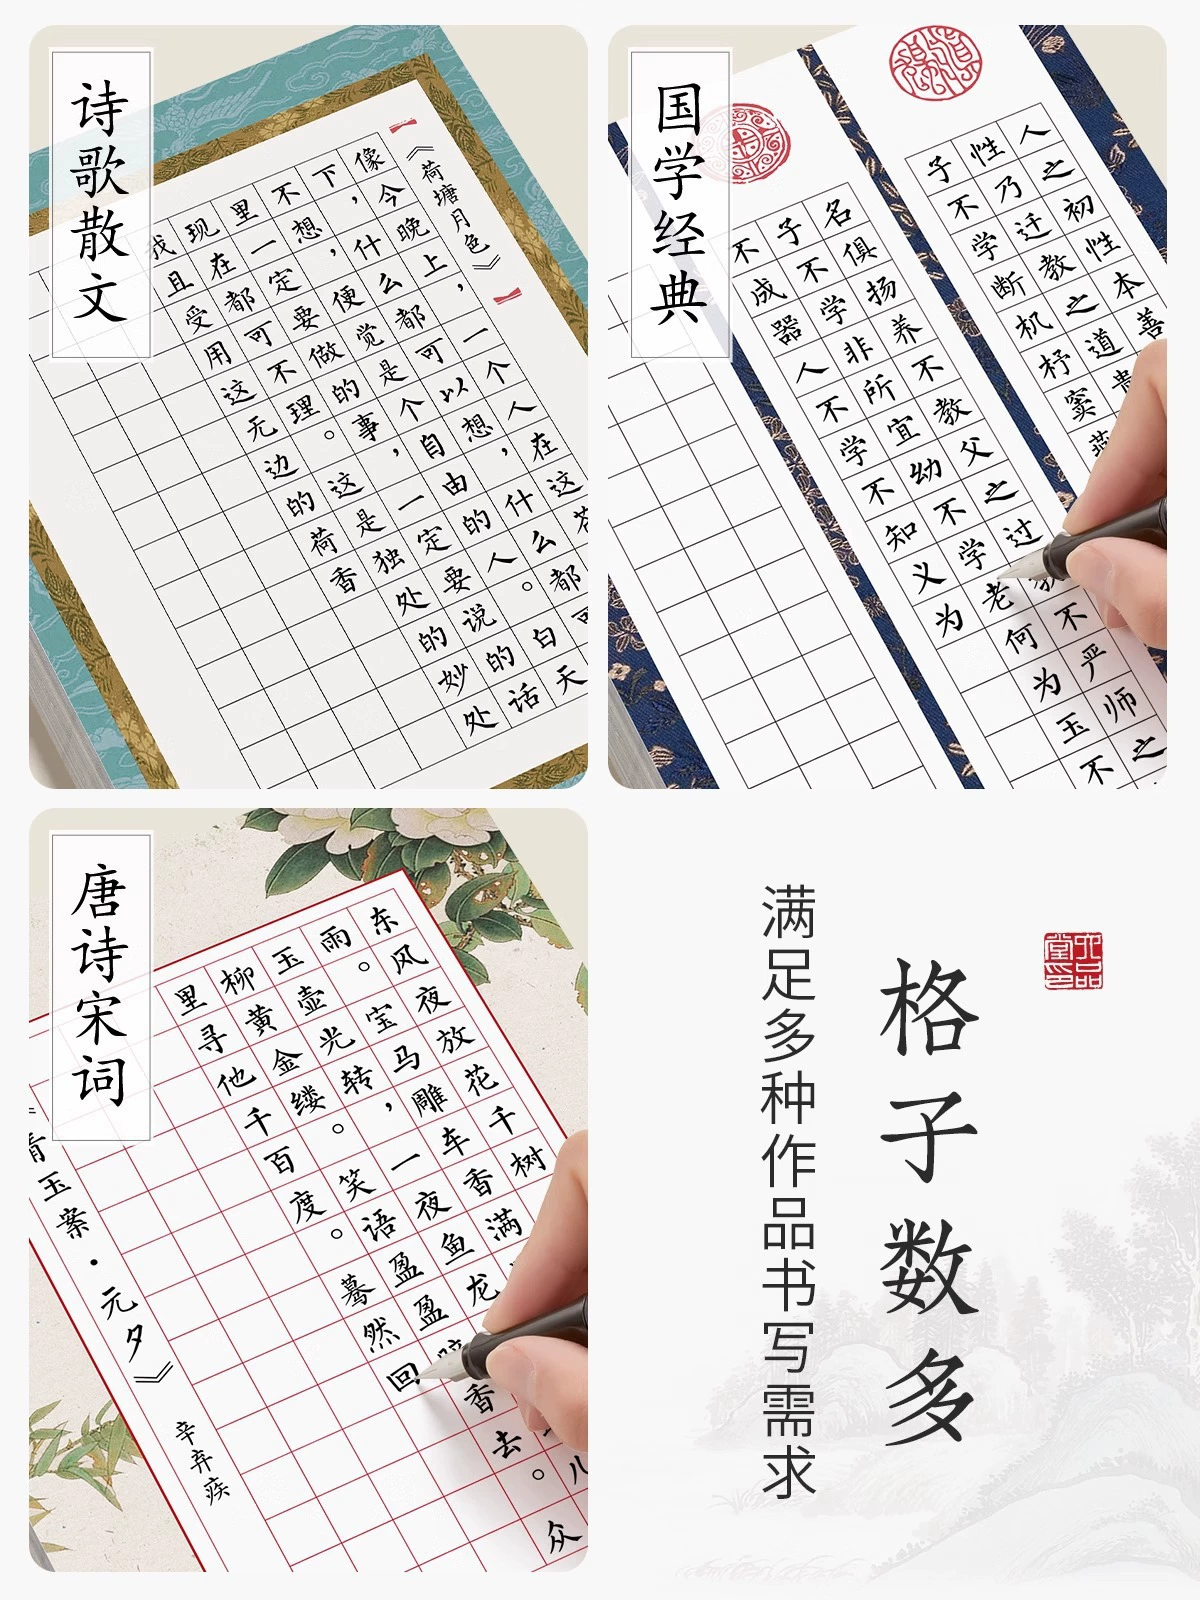 诗歌散文
《荷塘月色》
像今晚上,一个人在这苍
下,什么都可以想,什么都可
不想,便觉是个自由的人。白天
里一定要做的事,一定要说的话
现在都可不理。这是独处的妙处
我且受用这无边的荷香
国学经典
人之初性本善
性乃迁教之道贵
子不学断机杼窦燕
名俱扬养不教父之过教不严师之
子不学非所宜幼不学老何为玉不
不成器人不学不知义为
唐诗宋词
东风夜放花千树
雨。宝马雕车香满
玉壶光转,一夜鱼龙
儿
柳黄金缕。笑语盈盈暗香去。众
里寻他千百度。蓦然回
青玉案·元夕》
辛弃疾
格子数多
满足多种作品书写需求
六品堂印